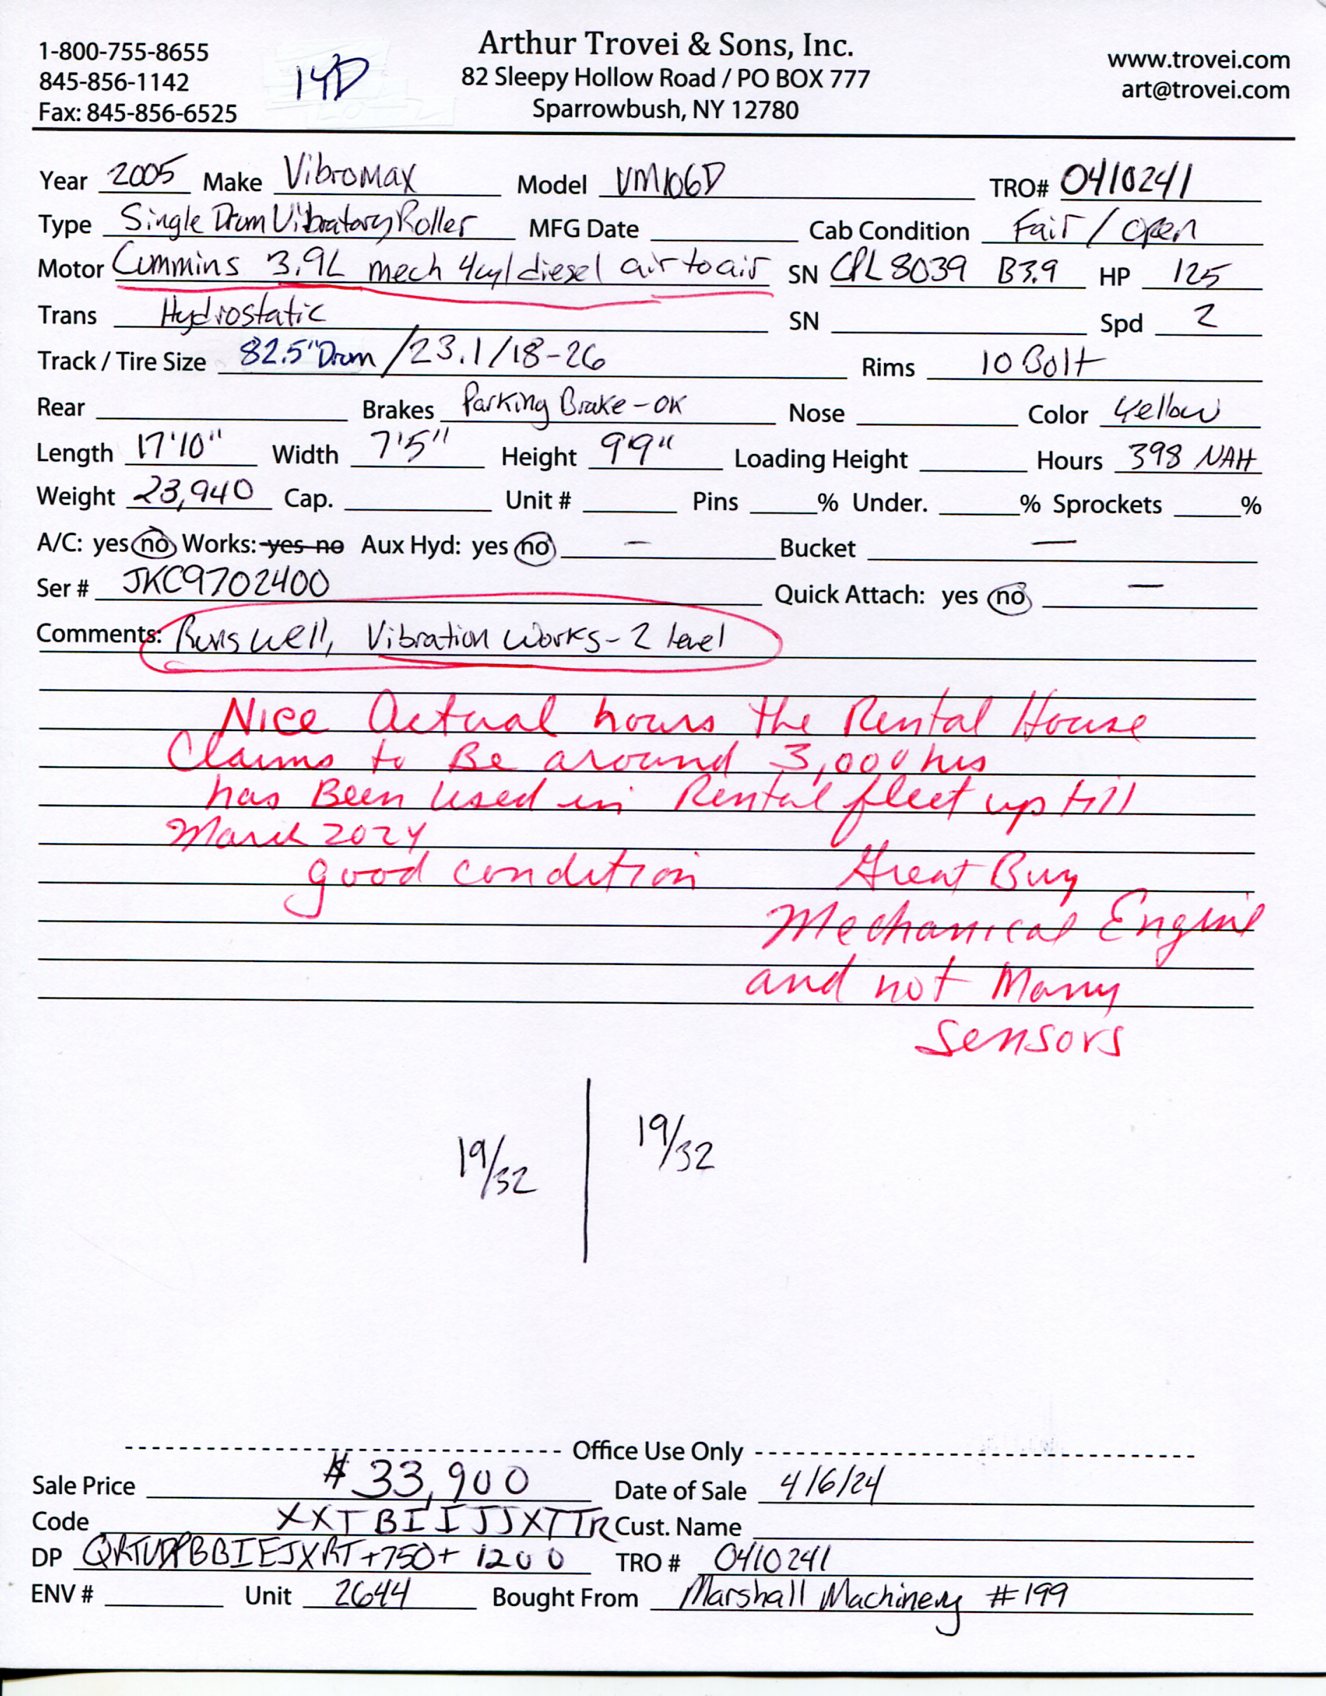 1-800-755-8655
845-856-1142
Fax: 845-856-6525
14D
Arthur Trovei & Sons, Inc.
82 Sleepy Hollow Road / PO BOX 777
Sparrowbush, NY 12780
www.trovei.com
art@trovei.com
Year 2005 Make VibroMax Model VM106D TRO# 0410241
Type Single Drum Vibratory Roller MFG Date Cab Condition Fair / open
Motor Cummins 3.9L mech 4cyl diesel air to air SN CPL 8039 B3.9 HP 125
Trans Hydrostatic SN Spd 2
Track / Tire Size 82.5" Drum / 23.1/18-26 Rims 10 Bolt
Rear Brakes Parking Brake - OK Nose Color Yellow
Length 17'10" Width 7'5" Height 9'9" Loading Height Hours 398 NAH
Weight 23,940 Cap. Unit # Pins % Under. % Sprockets %
A/C: yes no Works: yes no Aux Hyd: yes no — Bucket —
Ser # JKC9702400 Quick Attach: yes no —
Comments: Runs well, Vibration works - 2 level
Nice Actual hours the Rental House
Claims to Be around 3,000 hrs
has Been used in Rental fleet up till
March 2024
good condition Great Buy
Mechanical Engine
and not Many
sensors
19/32 19/32
Office Use Only
Sale Price $33,900 Date of Sale 4/6/24
Code XXTBIIJJXTTR Cust. Name
DP +750+ 1200 TRO # 0410241
ENV # Unit 2644 Bought From Marshall Machinery #199